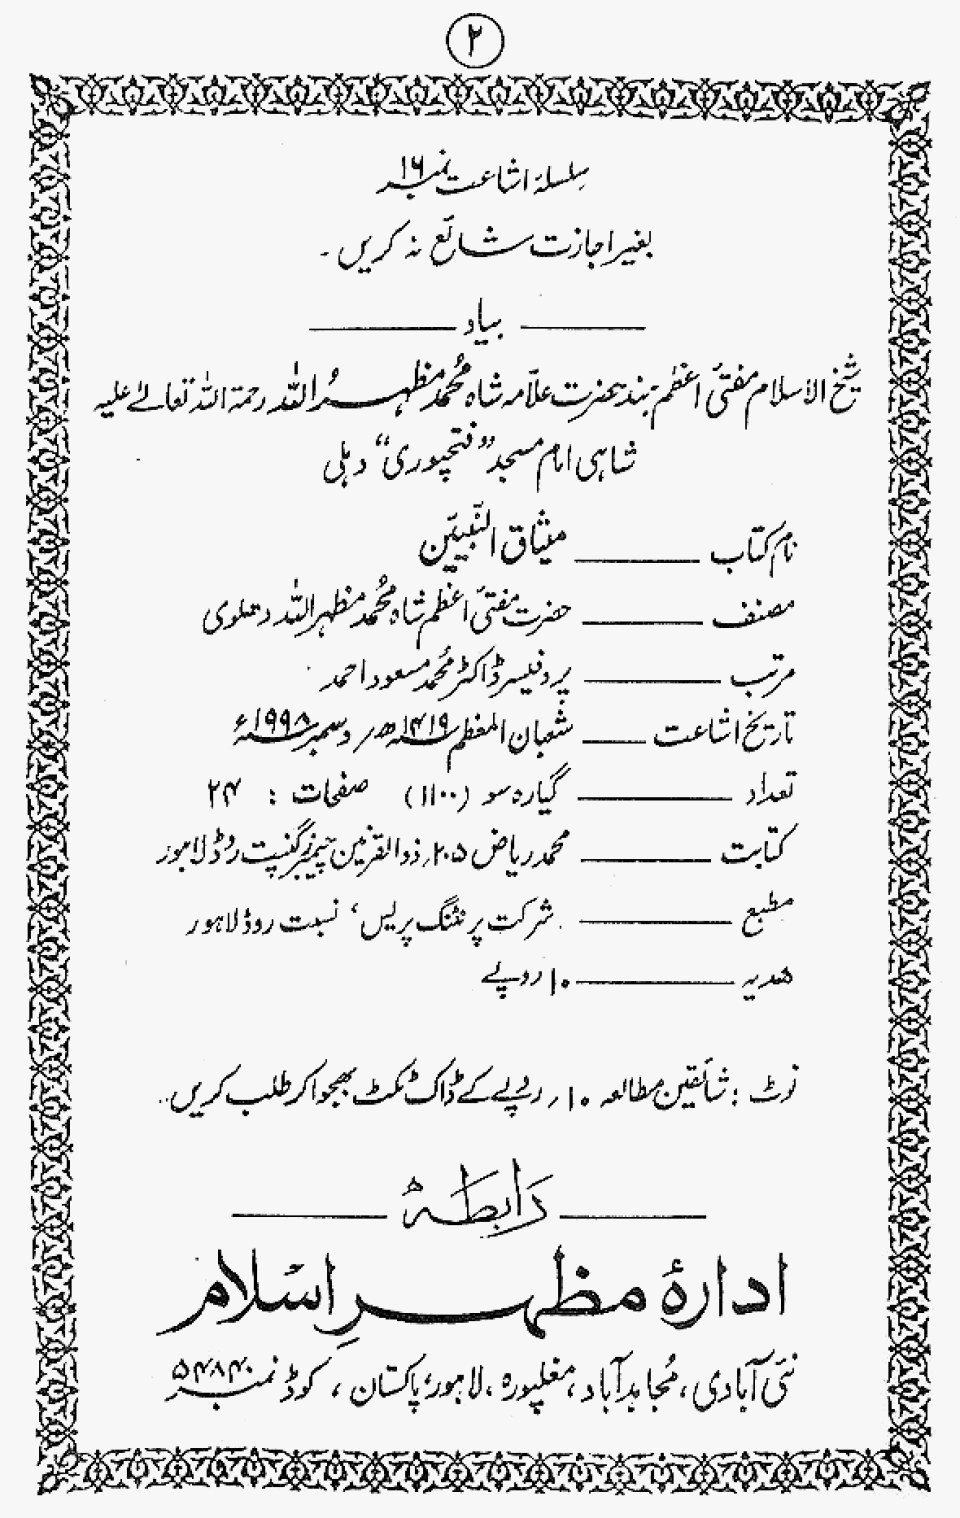 ۲
سلسلۂ اشاعت نمبر ۱۶
بغیر اجازت شائع نہ کریں ۔
بیاد
شیخ الاسلام مفتیٔ اعظم ہند حضرت علّامہ شاہ محمد مظہرُ اللہ رحمۃ اللہ تعالےٰ علیہ
شاہی امام مسجد "فتحپوری" دہلی
نام کتاب ــــــ میثاق النّبیّٖن
مصنف ــــــ حضرت مفتیٔ اعظم شاہ محمد مظہر اللہ دھلوی
مرتب ــــــ پروفیسر ڈاکٹر محمد مسعود احمد
تاریخ اشاعت ــــــ شعبان المعظم ۱۴۱۹ھ / دسمبر ۱۹۹۸ء
تعداد ــــــ گیارہ سو (۱۱۰۰) صفحات : ۲۴
کتابت ــــــ محمد ریاض ۲۰۵، ذوالقرنین چیمبرز گنپت روڈ لاہور
مطبع ــــــ شرکت پرنٹنگ پریس، نسبت روڈ لاہور
ھدیہ ــــــ ۱۰ روپے
نوٹ : شائقین مطالعہ ۱۰/ روپے کے ڈاک ٹکٹ بھجوا کر طلب کریں۔
رابطہ
ادارۂ مظہرِ اسلام
نئی آبادی، مُجاہد آباد، مغلپورہ، لاہور، پاکستان، کوڈ نمبر ۵۴۸۴۰